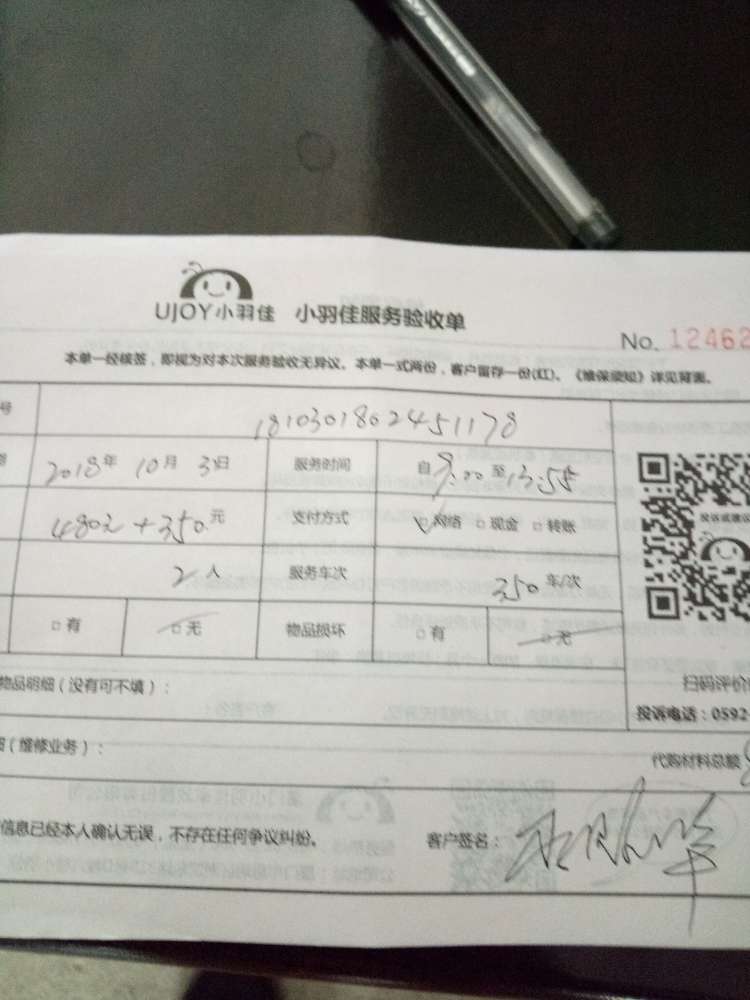 UJOY小羽佳 小羽佳服务验收单
No. 12462
本单一经核签，即视为对本次服务验收无异议。本单一式两份，客户留存一份(红)。《维保须知》详见背面。
号 1810301802451178
2018年 10月 3日 服务时间 自 9:00 至 13:55
480元 + 350元 支付方式 网络 现金 转账
2人 服务车次 350 车/次
有 无 物品损坏 有 无
物品明细（没有可不填）：
扫码评价
投诉电话：0592
（维修业务）：
代购材料总额
信息已经本人确认无误，不存在任何争议纠纷。 客户签名：